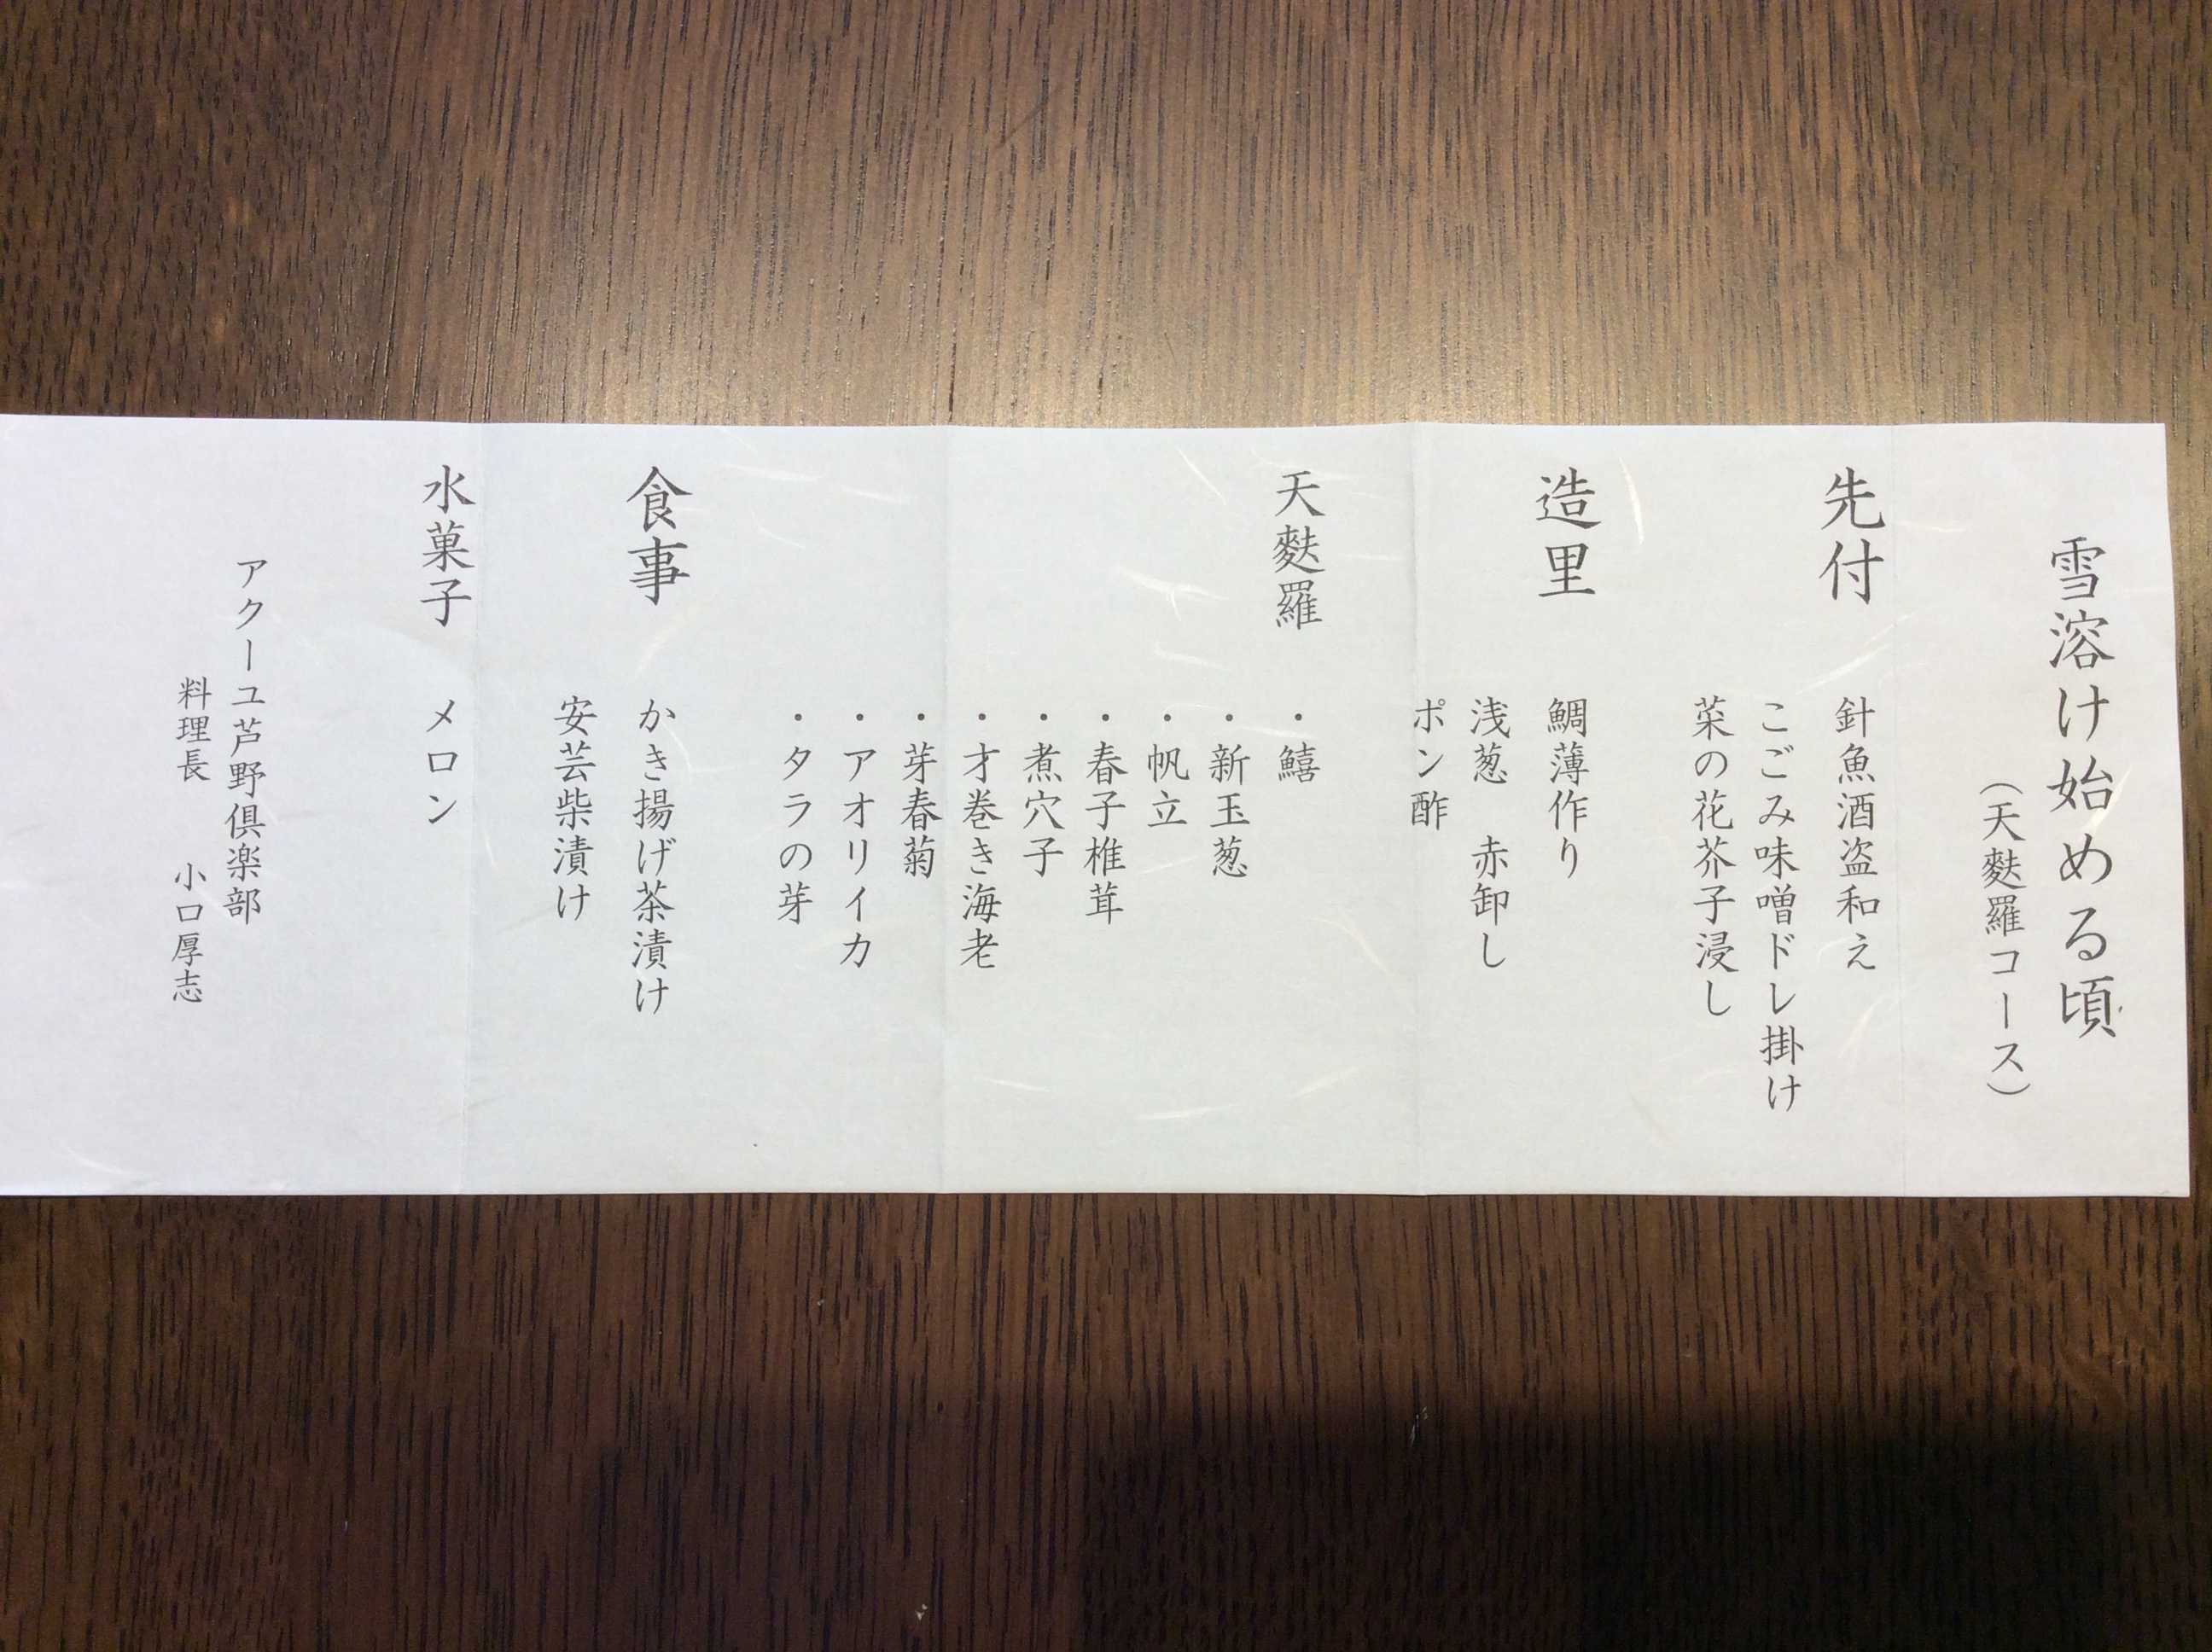 雪溶け始める頃
（天麩羅コース）
先付　針魚酒盗和え
こごみ味噌ドレ掛け
菜の花芥子浸し
造里　鯛薄作り
浅葱　赤卸し
ポン酢
天麩羅　・鱚
・新玉葱
・帆立
・春子椎茸
・煮穴子
・才巻き海老
・芽春菊
・アオリイカ
・タラの芽
食事　かき揚げ茶漬け
安芸柴漬け
水菓子　メロン
アクーユ芦野倶楽部
料理長　小口厚志